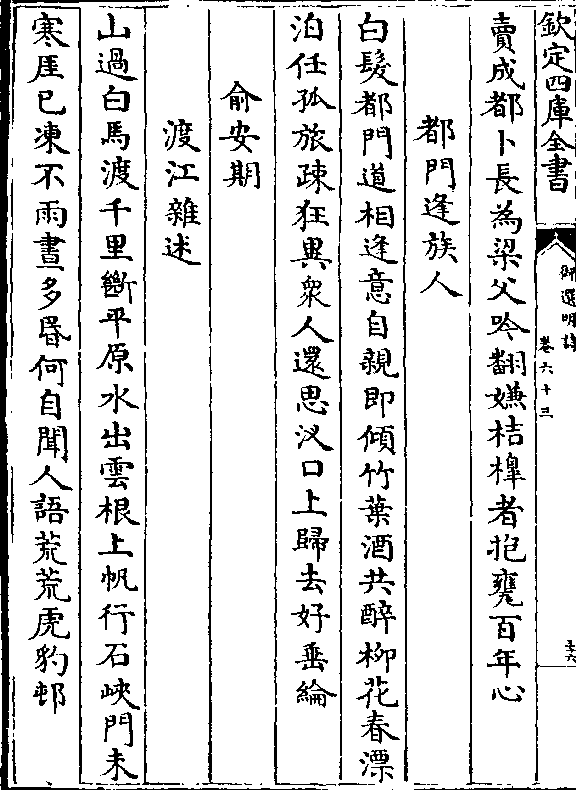 欽定四庫全書
御選明詩
卷六十三
賣成都卜長為梁父吟翻嫌桔橰者抱甕百年心
都門逢族人
白髮都門道相逢意自親即傾竹葉酒共醉柳花春漂
泊任孤旅疎狂異衆人還思汊口上歸去好垂綸
俞安期
渡江雜述
山過白馬渡千里斷平原水出雲根上帆行石峽門未
寒厓已凍不雨晝多昏何自聞人語荒荒虎豹邨